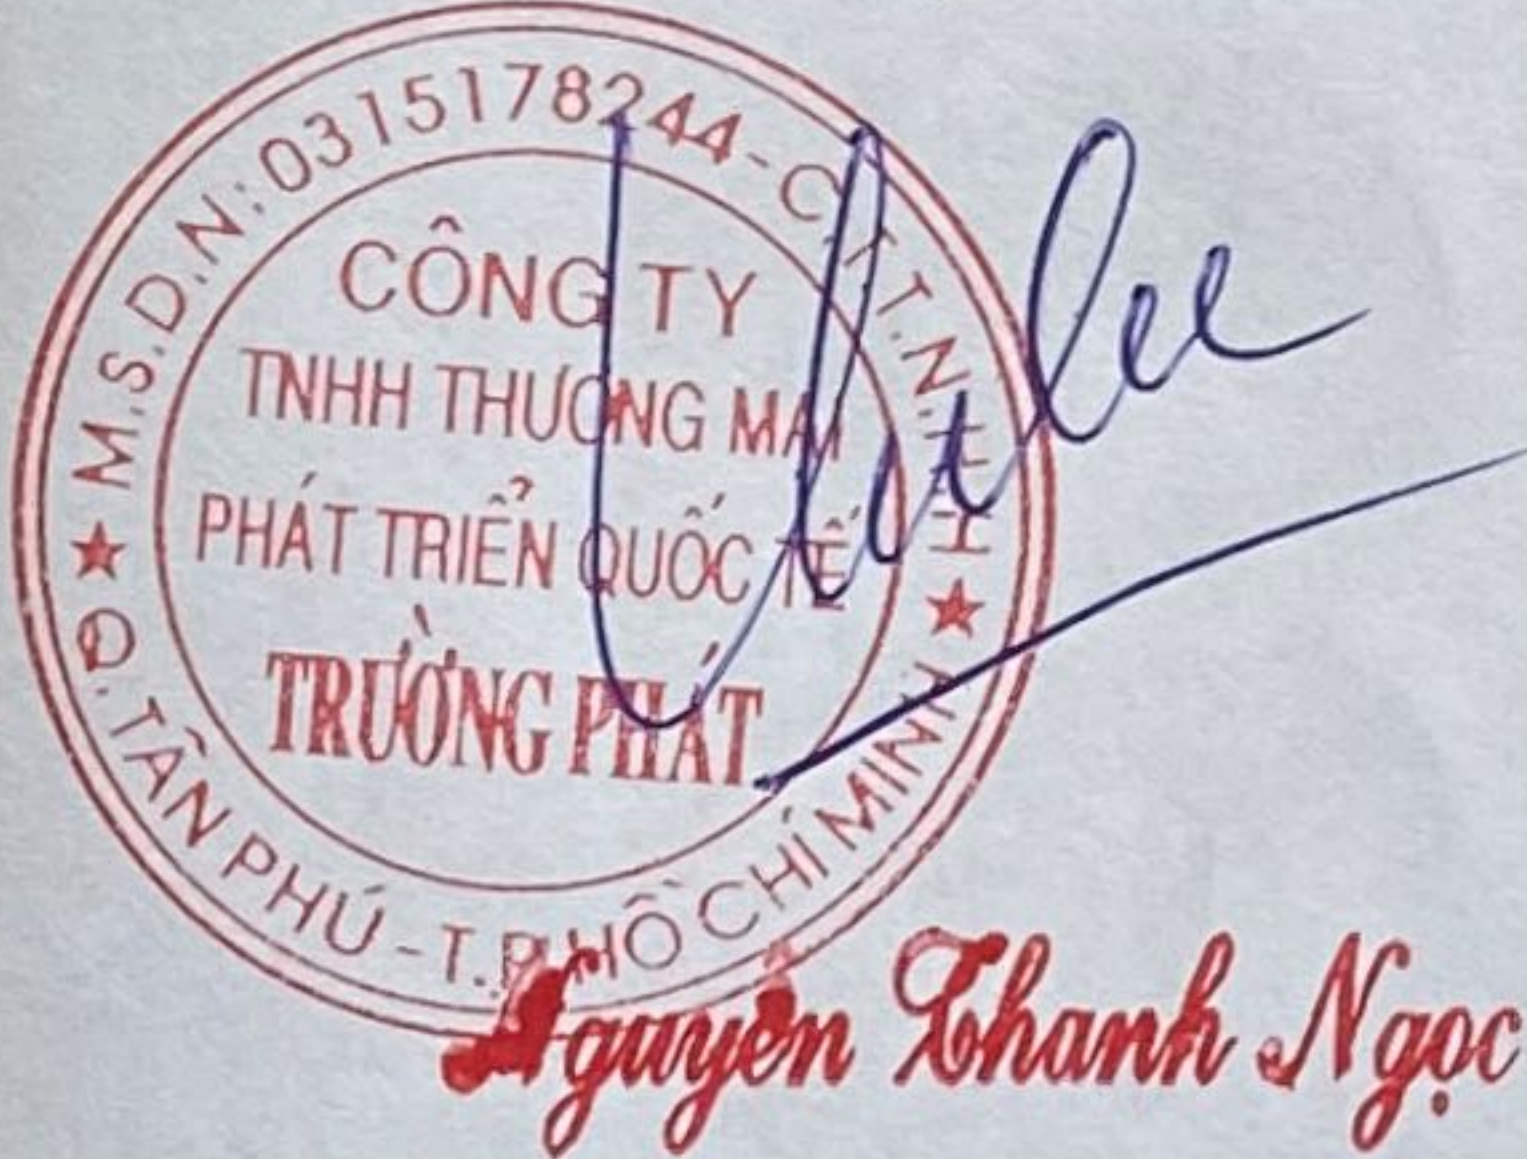 M.S.D.N: 0315178244-C.T.T.N.H.H
CÔNG TY
TNHH THƯƠNG MẠI
PHÁT TRIỂN QUỐC TẾ
TRƯỜNG PHÁT
Q. TÂN PHÚ - T.P. HỒ CHÍ MINH
Nguyễn Thanh Ngọc